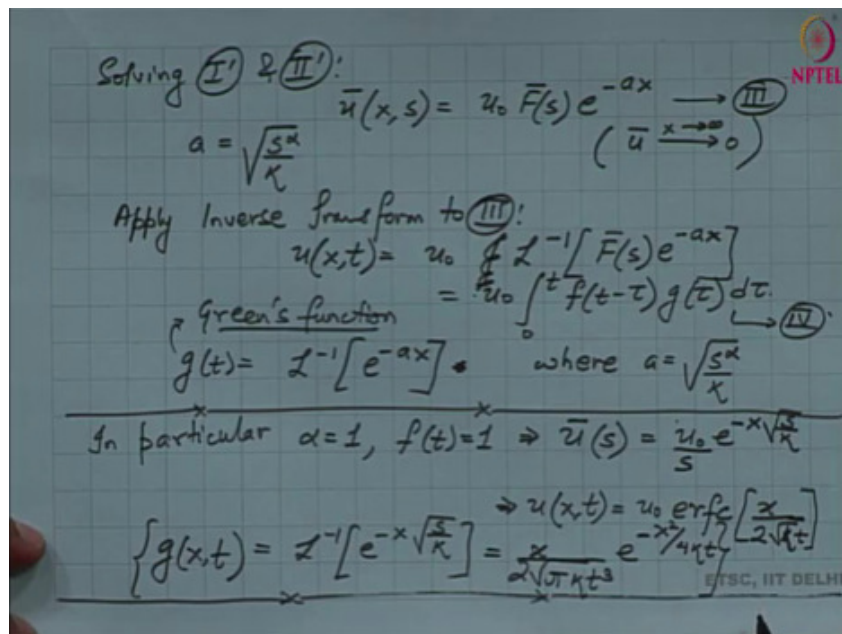 Solving (I') & (II'):
NPTEL
ū(x, s) = u₀ F̄(s) e^{-ax} → (III)
a = √(s^α/κ)
(ū →^{x→∞} 0)
Apply Inverse Transform to (III):
u(x,t) = u₀ ℒ⁻¹[F̄(s) e^{-ax}]
= u₀ ∫₀ᵗ f(t-τ) g(τ) dτ.
→ (IV)
Green's function
g(t) = ℒ⁻¹[e^{-ax}]. where a = √(s^α/κ)
In particular α=1, f(t)=1 ⇒ ū(s) = u₀/s e^{-x√(s/κ)}
⇒ u(x,t) = u₀ erfc[x/(2√(κt))]
{g(x,t) = ℒ⁻¹[e^{-x√(s/κ)}] = x/(2√(πκt³)) e^{-x²/4κt}}
ETSC, IIT DELHI